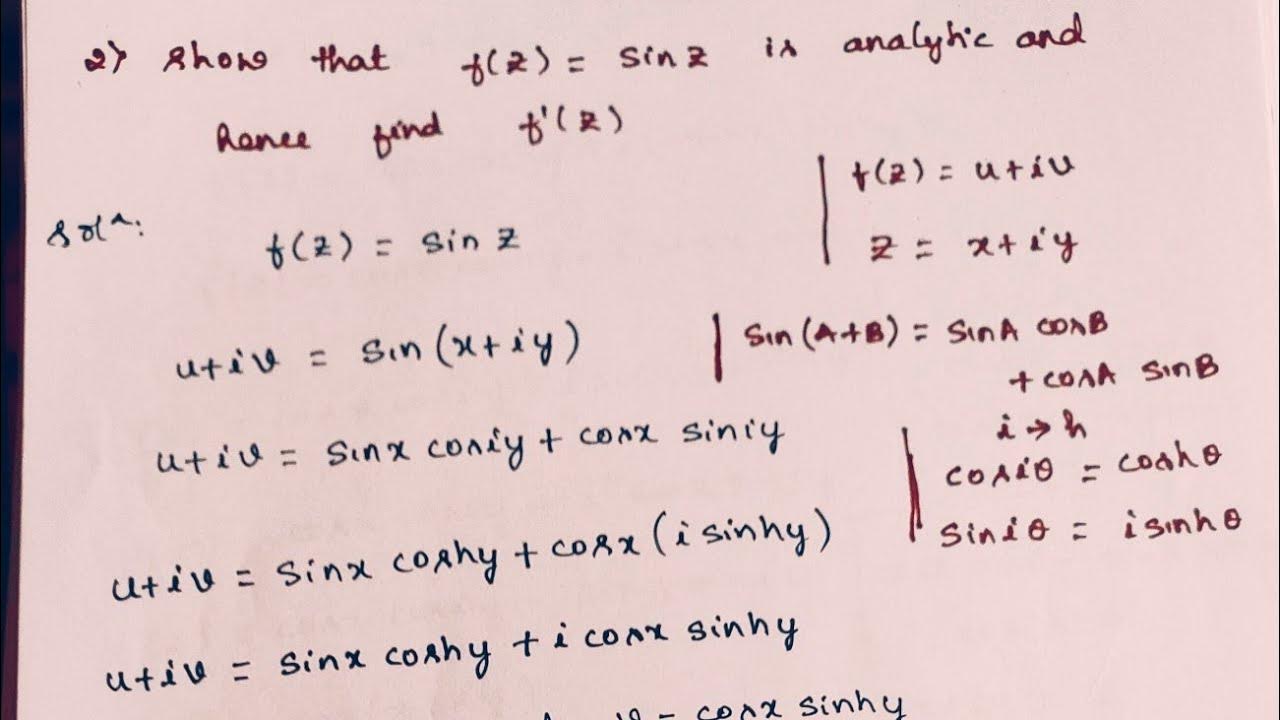 2) Show that f(z) = sin z is analytic and
hence find f'(z)
| f(z) = u+iv
Soln:
f(z) = sin z
z = x+iy
u+iv = sin(x+iy)
| sin(A+B) = sinA cosB
+ cosA sinB
u+iv = sinx cosiy + cosx siniy
i → h
cosiθ = coshθ
siniθ = i sinhθ
u+iv = sinx coshy + cosx (i sinhy)
u+iv = sinx coshy + i cosx sinhy
v = cosx sinhy